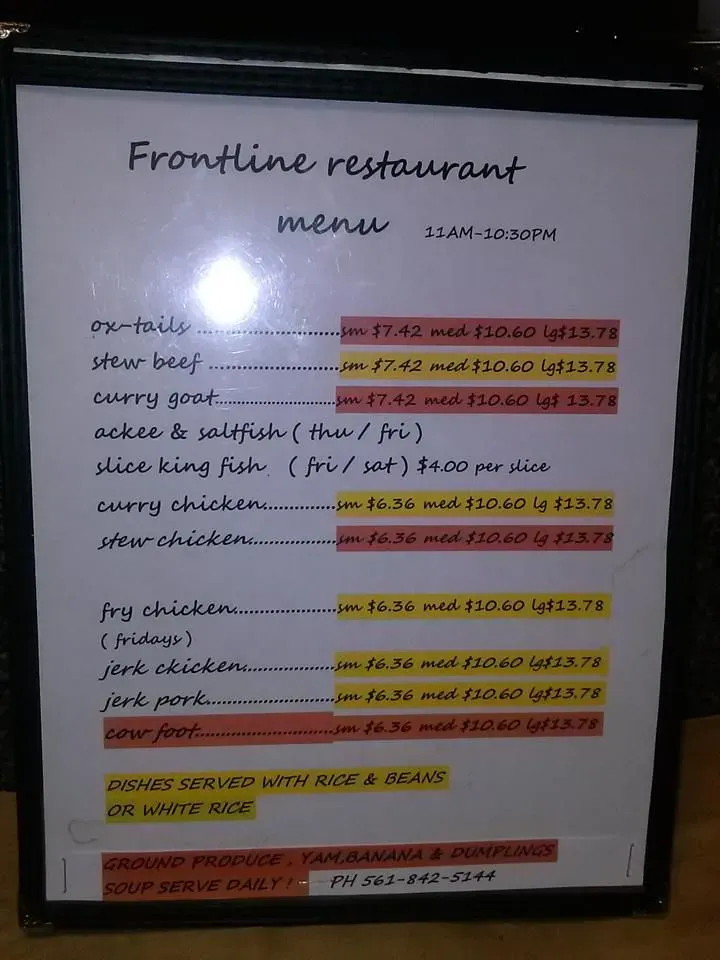 Frontline restaurant
menu 11AM-10:30PM
ox-tails ......................sm $7.42 med $10.60 lg$13.78
stew beef ....................sm $7.42 med $10.60 lg$13.78
curry goat....................sm $7.42 med $10.60 lg$ 13.78
ackee & saltfish ( thu / fri )
slice king fish. ( fri / sat ) $4.00 per slice
curry chicken.............sm $6.36 med $10.60 lg $13.78
stew chicken...............sm $6.36 med $10.60 lg $13.78
fry chicken..................sm $6.36 med $10.60 lg$13.78
( fridays )
jerk ckicken................sm $6.36 med $10.60 lg$13.78
jerk pork......................sm $6.36 med $10.60 lg$13.78
cow foot.......................sm $6.36 med $10.60 lg$13.78
DISHES SERVED WITH RICE & BEANS
OR WHITE RICE
GROUND PRODUCE , YAM,BANANA & DUMPLINGS
SOUP SERVE DAILY ! PH 561-842-5144